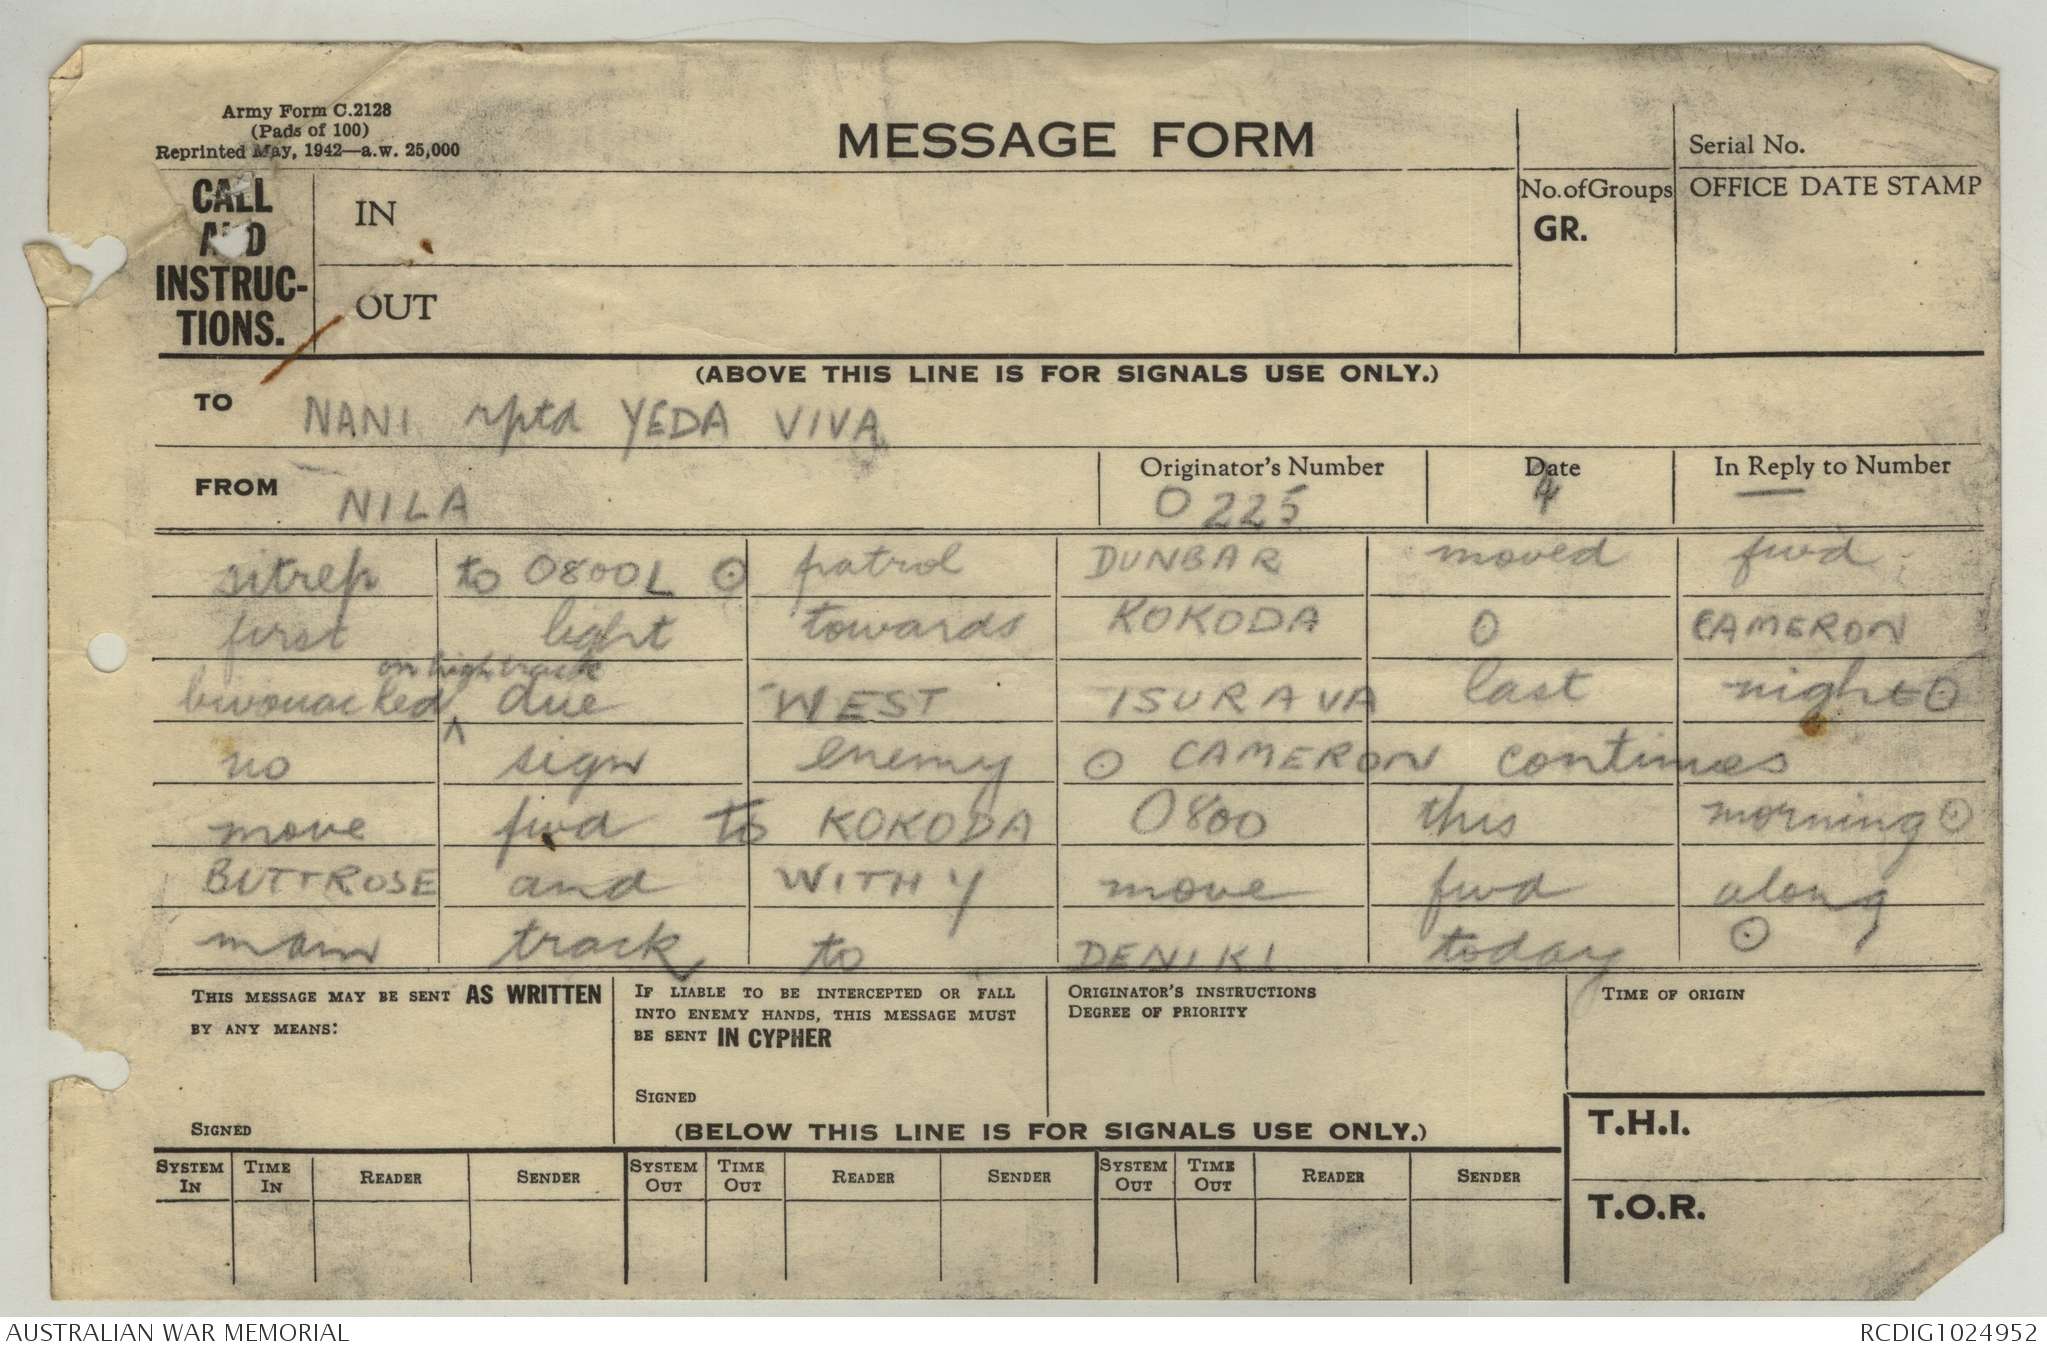 Army Form C.2128
(Pads of 100)
Reprinted May, 1942—a.w. 25,000
MESSAGE FORM
Serial No.
CALL AND INSTRUC-TIONS.
IN
OUT
No. of Groups
GR.
OFFICE DATE STAMP
(ABOVE THIS LINE IS FOR SIGNALS USE ONLY.)
TO NANI rptd YEDA VIVA
FROM NILA
Originator's Number 0225
Date 4
In Reply to Number —
sitrep to 0800L ⊙ patrol DUNBAR moved fwd
first light towards KOKODA O CAMERON
on high track
bivouacked ^ due WEST ISURAVA last night ⊙
no sign enemy ⊙ CAMERON continues
move fwd to KOKODA 0800 this morning ⊙
BUTTROSE and WITHY move fwd along
main track to DENIKI today ⊙
THIS MESSAGE MAY BE SENT AS WRITTEN
BY ANY MEANS:
SIGNED
IF LIABLE TO BE INTERCEPTED OR FALL
INTO ENEMY HANDS, THIS MESSAGE MUST
BE SENT IN CYPHER
SIGNED
ORIGINATOR'S INSTRUCTIONS
DEGREE OF PRIORITY
TIME OF ORIGIN
(BELOW THIS LINE IS FOR SIGNALS USE ONLY.)
T.H.I.
T.O.R.
SYSTEM IN TIME IN READER SENDER SYSTEM OUT TIME OUT READER SENDER SYSTEM OUT TIME OUT READER SENDER
AUSTRALIAN WAR MEMORIAL
RCDIG1024952